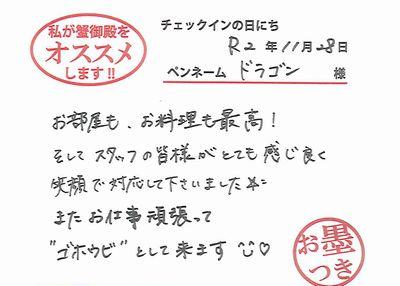 私が蟹御殿を
オススメ
します!!
チェックインの日にち
R2年11月28日
ペンネーム ドラゴン 様
お部屋も、お料理も最高!
そしてスタッフの皆様がとても感じ良く
笑顔で対応して下さいました
またお仕事頑張って
"ゴホウビ"として来ます
お墨
つき